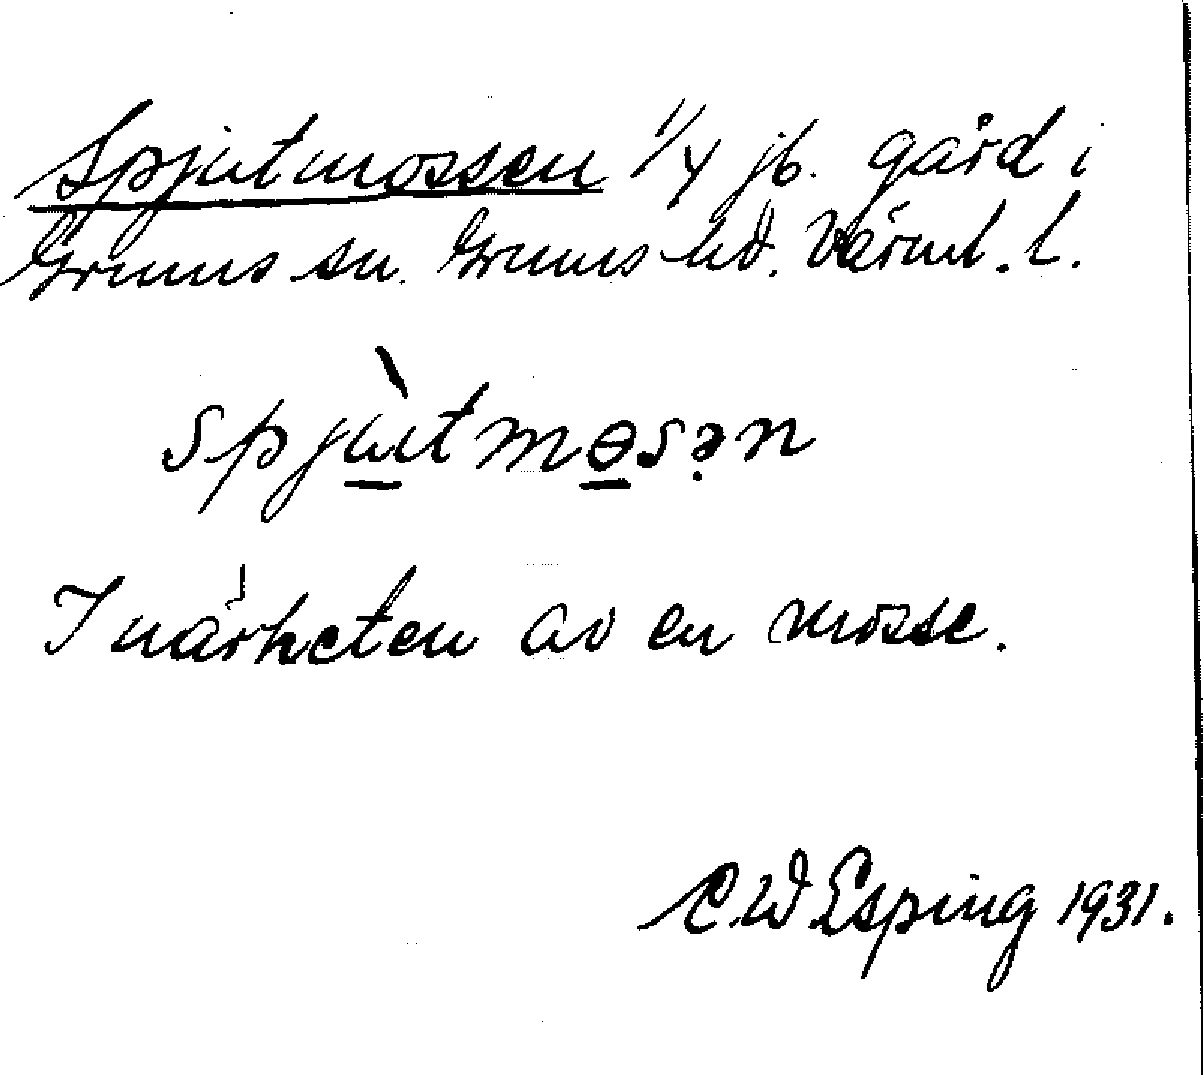 Spjutmossen 1/4 jb. gård i
Grums sn. Grums hd. Värml. l.
spjùtmɵsən
I närheten av en mosse.
C W Esping 1931.